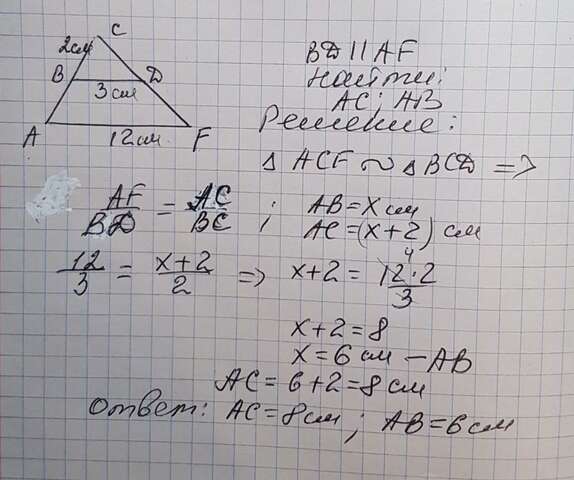 C
2см
B
D
3 см
A
12 см
F
BD || AF
Найти:
AC; AB
Решение:
Δ ACF ~ Δ BCD =>
AF/BD = AC/BC ; AB = x см
AC = (x+2) см
12/3 = x+2/2 => x+2 = 12·2/3
4
x+2 = 8
x = 6 см – AB
AC = 6+2 = 8 см
Ответ: AC = 8 см ; AB = 6 см